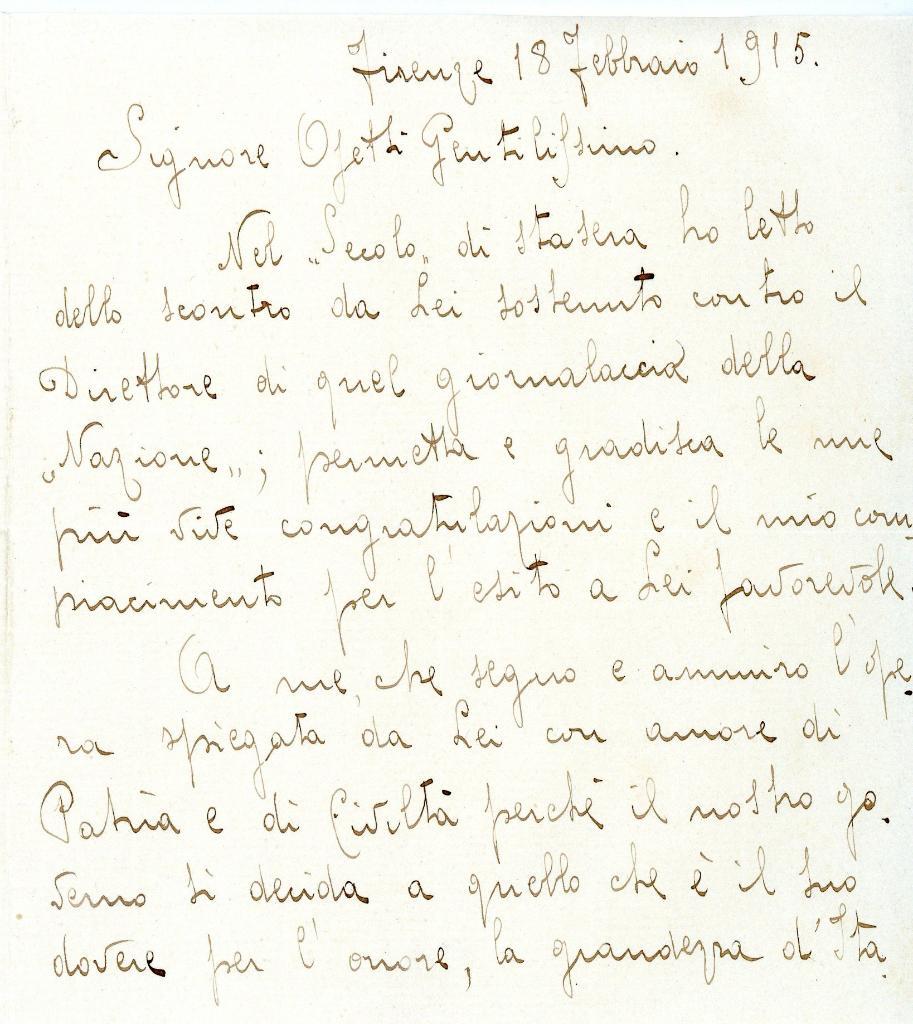 Firenze 18 Febbraio 1915.
Signore Ojetti Gentilissimo.
Nel „Secolo„ di stasera ho letto
dello scontro da Lei sostenuto contro il
Direttore di quel giornalaccio della
„Nazione„; permetta e gradisca le mie
più vive congratulazioni e il mio com-
piacimento per l'esito a Lei favorevole.
A me, che seguo e ammiro l'ope-
ra spiegata da Lei con amore di
Patria e di Civiltà perchè il nostro go-
verno si decida a quello che è il suo
dovere per l'onore, la grandezza d'Ita-